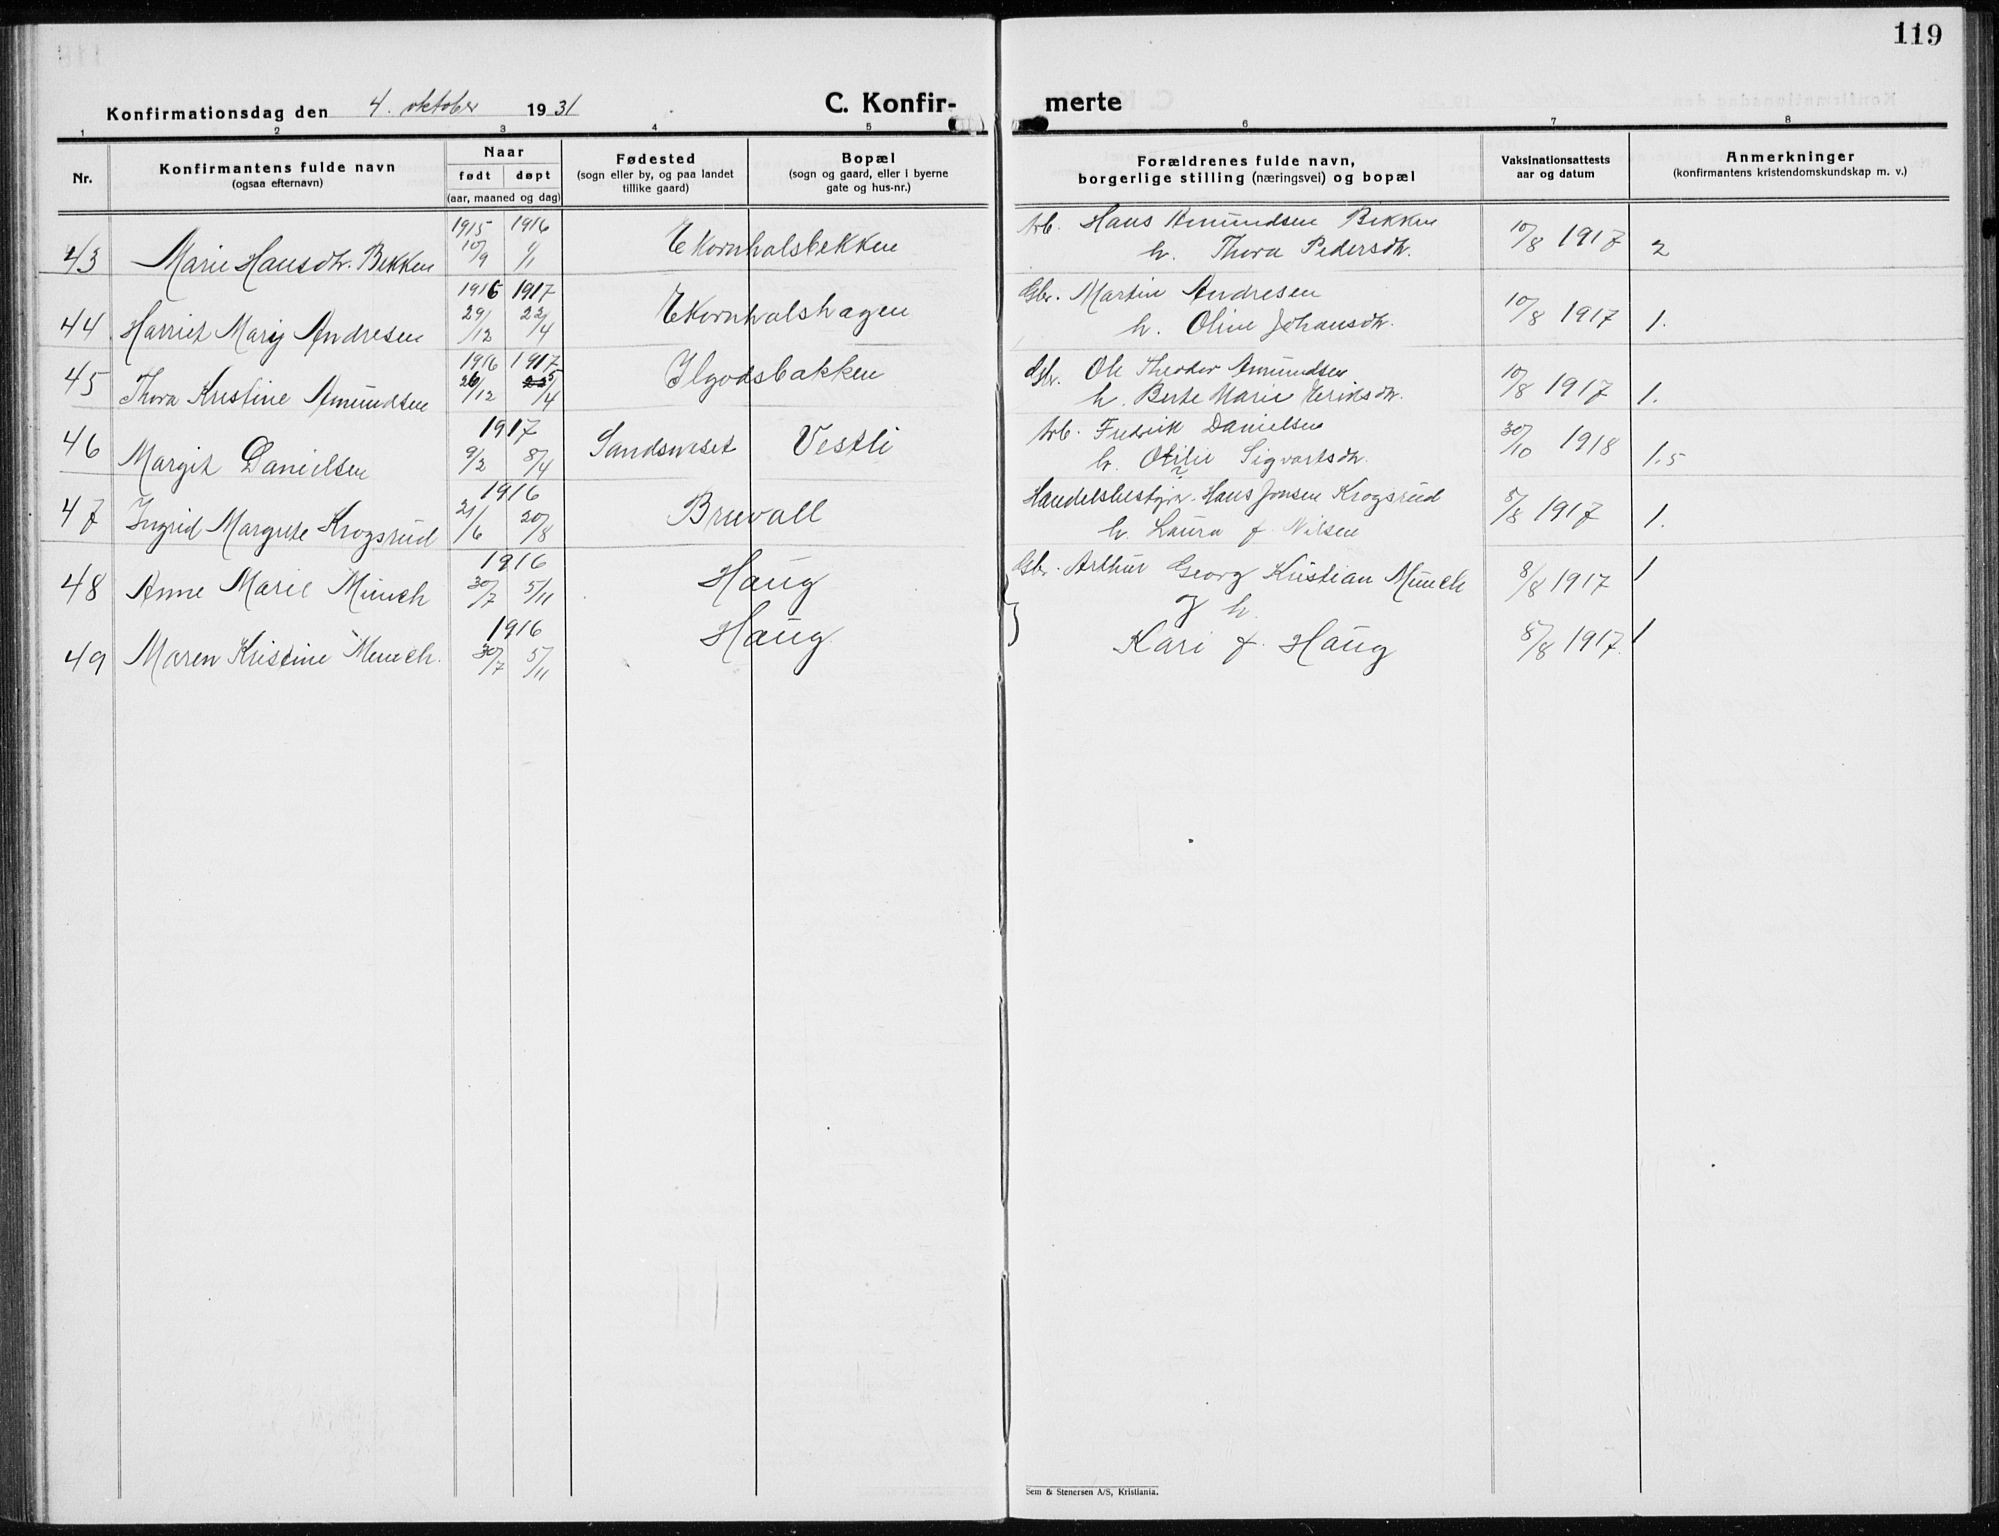 119
Konfirmationsdag den 4. oktober 1931
C. Konfir-
merte
1 2 3 4 5 6 7 8
Nr.
Konfirmantens fulde navn
(ogsaa efternavn)
Naar
født døpt
(aar, maaned og dag)
Fødested
(sogn eller by, og paa landet
tillike gaard)
Bopæl
(sogn og gaard, eller i byerne
gate og hus-nr.)
Forældrenes fulde navn,
borgerlige stilling (næringsvei) og bopæl
Vaksinationsattests
aar og datum
Anmerkninger
(konfirmantens kristendomskundskap m. v.)
1915 1916 Arb. Hans Amundsen Bekken
43 Marie Hansdtr. Bekken 10/9 1/1 Ekornholsbekken h. Thora Pedersdtr. 10/8 1917 2
1916 1917 Gbr. Martin Andresen
44 Harriet Mary Andresen 29/12 22/4 Ekornholshagen h. Oline Johansdtr. 10/8 1917 1.
1916 1917 Gbr. Ole Theodor Amundsen
45 Thora Kristine Amundsen 26/12 5/4 Ilgodsbakken h. Berte Marie Eriksdtr. 10/8 1917 1.
1917 Arb. Fredrik Danielsen
46 Margit Danielsen 9/2 8/4 Sandsveset Vestli h. Otilie Sigvartsdtr. 30/10 1918 1.5
1916 Handelsbestyr. Hans Jonsen Krogsrud
47 Ingrid Margrete Krogsrud 21/6 20/8 Bruvall h. Laura f. Nilsen 8/8 1917 1.
1916 Gbr. Arthur Georg Kristian Münch
48 Anne Marie Münch 30/7 5/11 Haug og h. 8/8 1917 1
1916
49 Maren Kristine Münch. 30/7 5/11 Haug Kari f. Haug 8/8 1917. 1
Sem & Stenersen A/S, Kristiania.